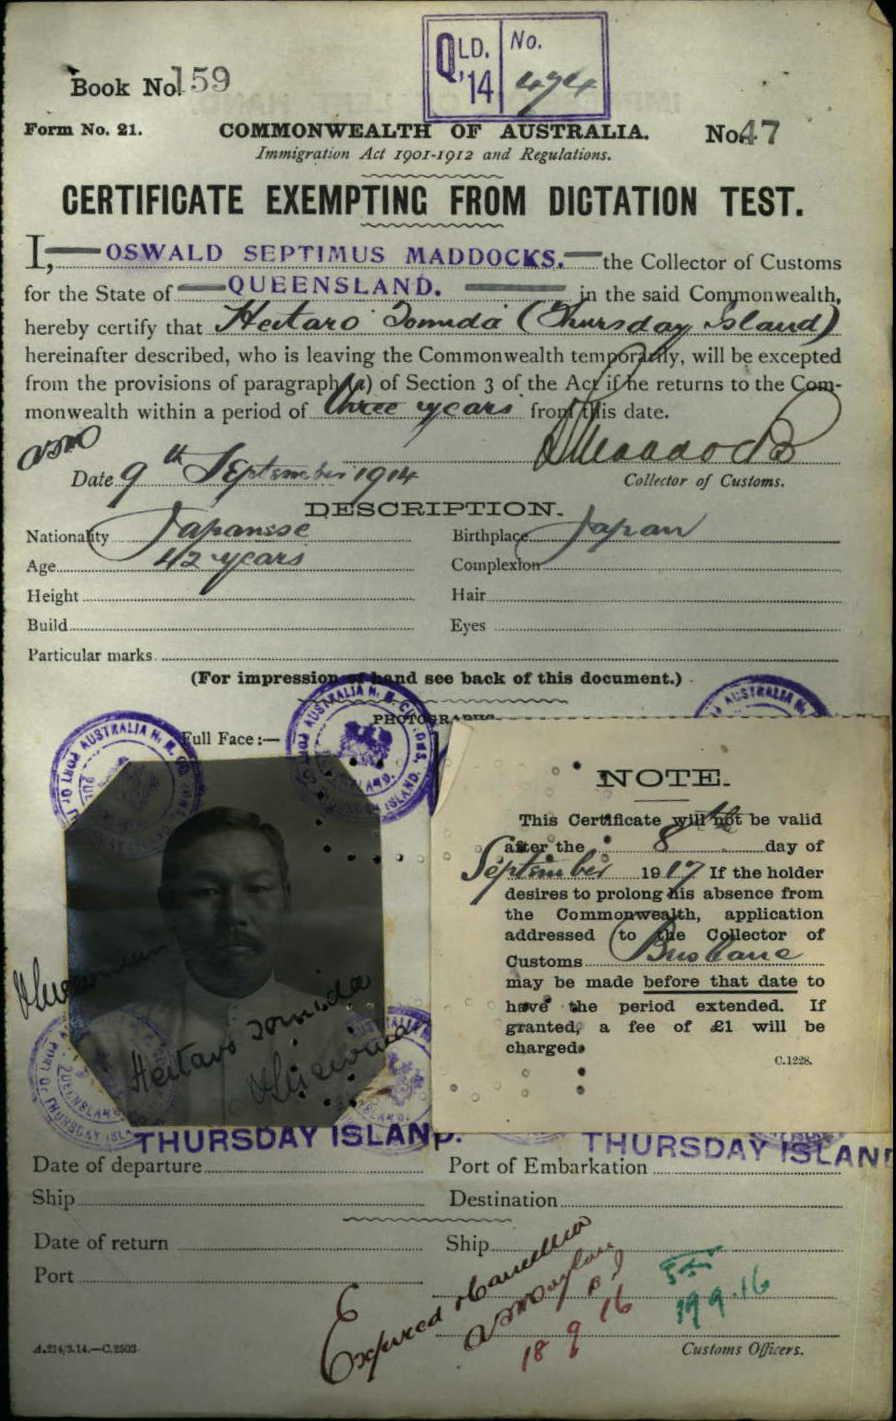 QLD. '14 No. 494
Book No. 159
Form No. 21. COMMONWEALTH OF AUSTRALIA. No. 47
Immigration Act 1901-1912 and Regulations.
CERTIFICATE EXEMPTING FROM DICTATION TEST.
I, OSWALD SEPTIMUS MADDOCKS. the Collector of Customs
for the State of QUEENSLAND. in the said Commonwealth,
hereby certify that Heitaro Tomida (Thursday Island)
hereinafter described, who is leaving the Commonwealth temporarily, will be excepted
from the provisions of paragraph (a) of Section 3 of the Act if he returns to the Com-
monwealth within a period of three years from this date.
Date 9th September 1914
Collector of Customs.
DESCRIPTION.
Nationality Japanese Birthplace Japan
Age 42 years Complexion
Height Hair
Build Eyes
Particular marks
(For impression of hand see back of this document.)
PHOTOGRAPHS
Full Face:—
NOTE.
This Certificate will not be valid
after the 8th day of
September 1917 If the holder
desires to prolong his absence from
the Commonwealth, application
addressed to the Collector of
Customs Brisbane
may be made before that date to
have the period extended. If
granted, a fee of £1 will be
charged.
C.1228.
Heitaro Tomida
THURSDAY ISLAND. THURSDAY ISLAN
Date of departure Port of Embarkation
Ship Destination
Date of return Ship
Port
Expired & Cancelled
18 9 16
19 9.16
A.224/3.14.—C.2503. Customs Officers.